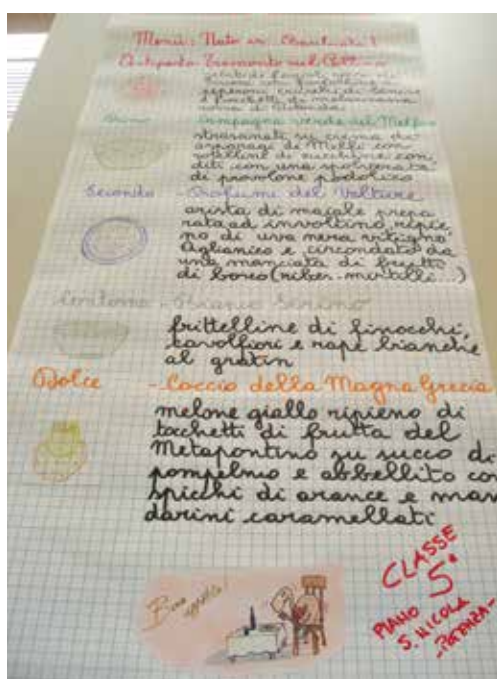 Menù: Nato in
Antipasto Tramonto nel
peperoni cruschi di Senise
Primo - Campagna verde del Melfese
strascinati su crema di
asparagi di Melfi con
rotelline di zucchine con
diti con una spolverata
di provolone podolico
Secondo - Profumi del Vulture
arista di maiale prepa
rata ad involtino, ripie
no di uva nera vitigno
Aglianico e circondato da
una manciata di frutti
di bosco (ribes-mirtilli...)
Contorno - Bianco Sirino
frittelline di finocchi,
cavolfiori e rape bianche
al gratin
Dolce - Coccio della Magna Grecia
melone giallo ripieno di
tocchetti di frutta del
Metapontino su succo di
pompelmo e abbellito con
spicchi di arance e man
darini caramellati
Buon appetito!
CLASSE
5ª
PIANO
S. NICOLA
-POTENZA-